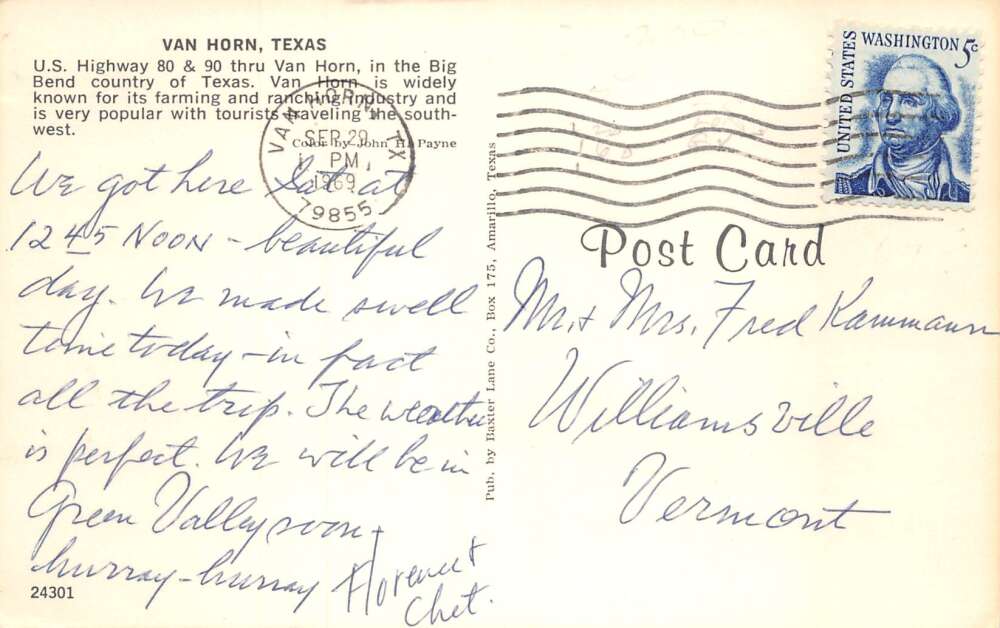 VAN HORN, TEXAS
U.S. Highway 80 & 90 thru Van Horn, in the Big
Bend country of Texas. Van Horn is widely
known for its farming and ranching industry and
is very popular with tourists traveling the south-
west.
Color by John H. Payne
VAN HORN, TX
SEP 29
PM
1969
79855
UNITED STATES
WASHINGTON 5c
Post Card
We got here Sat at
12 45 Noon - beautiful
day. We made swell
time today - in fact
all the trip. The weather
is perfect. We will be in
Green Valley soon -
hurray - hurray
Florence &
Chet.
24301
Pub. by Baxter Lane Co., Box 175, Amarillo, Texas
Mr. & Mrs. Fred Kammann
Williamsville
Vermont